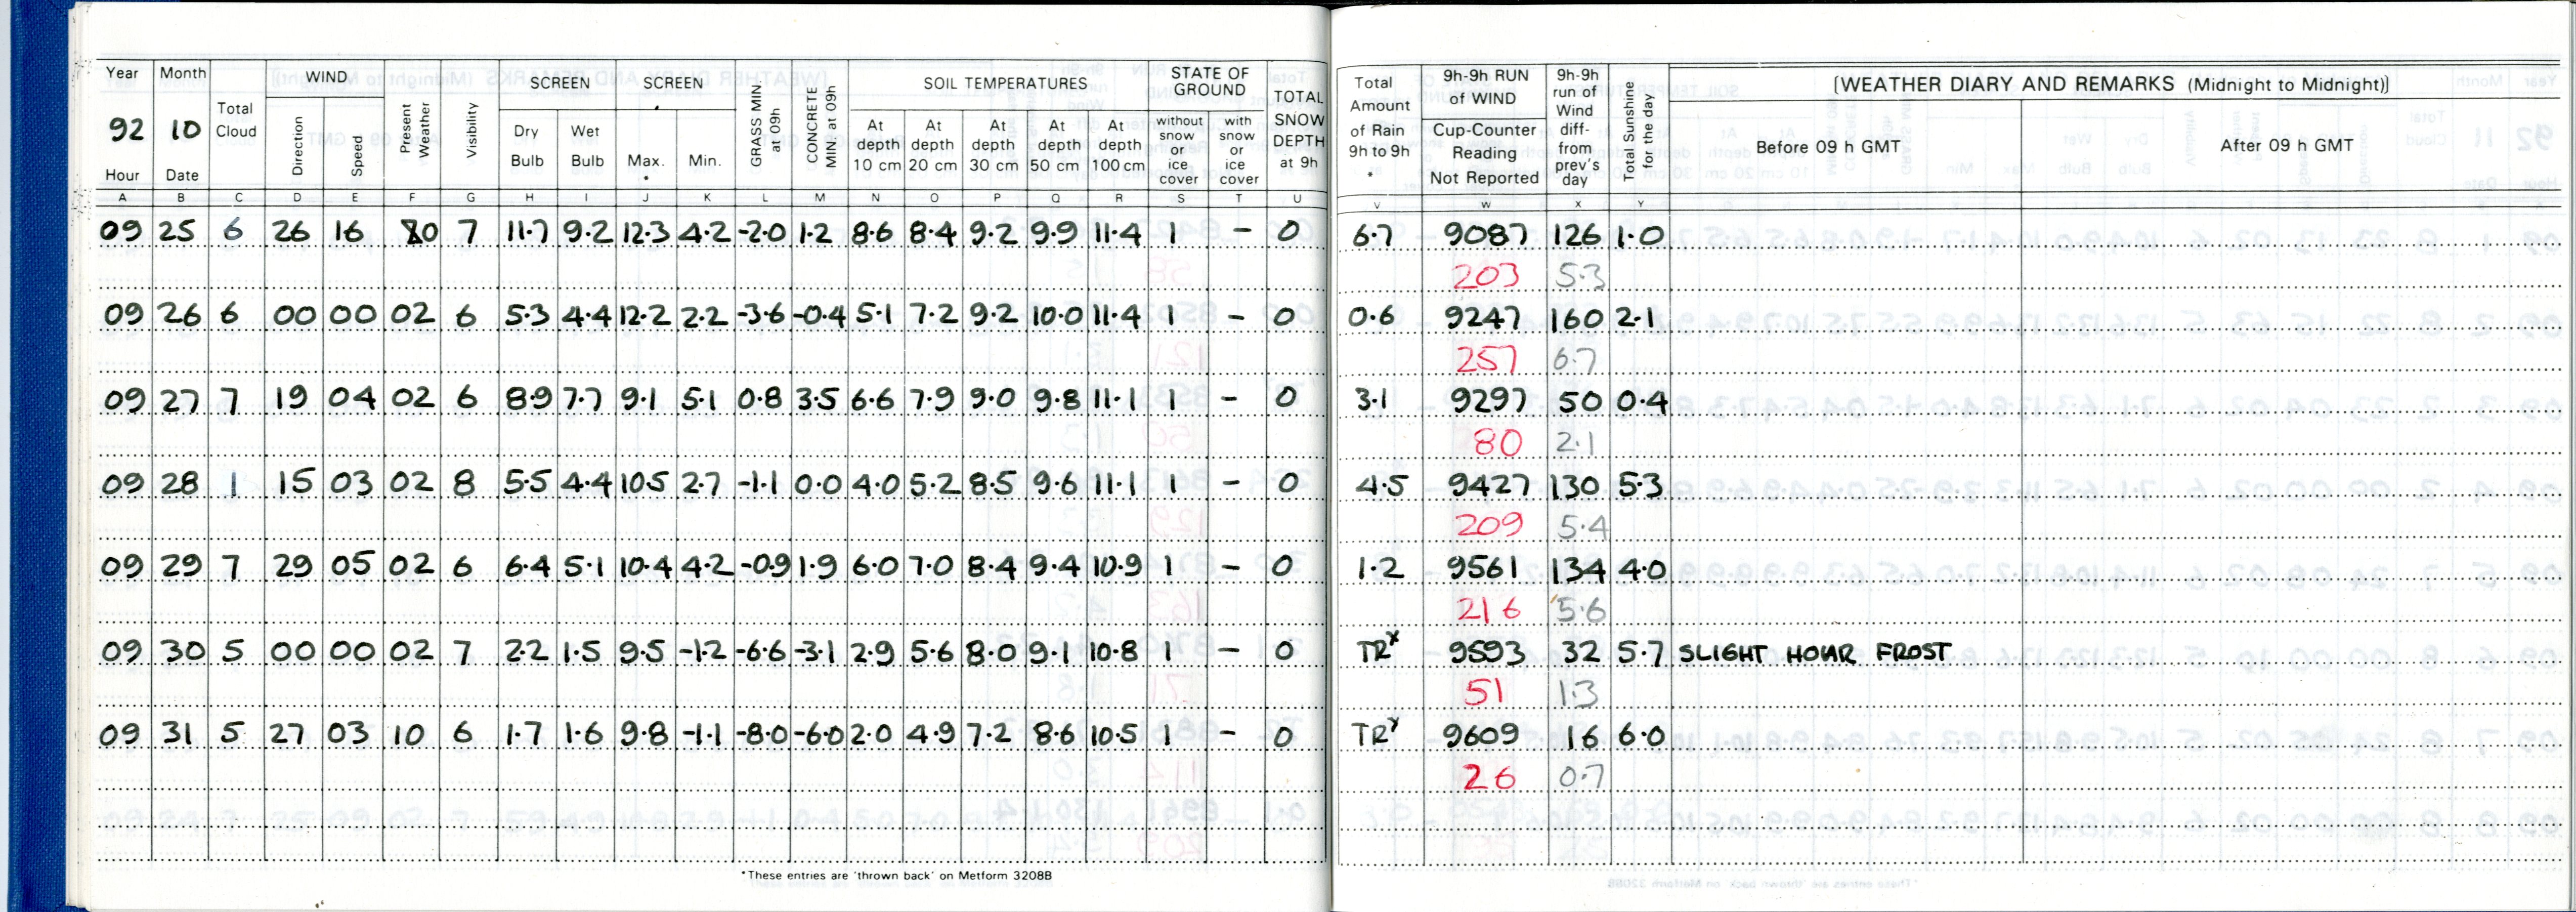 Year Month Total Cloud WIND Present Weather Visibility SCREEN SCREEN GRASS MIN. at 09h CONCRETE MIN. at 09h SOIL TEMPERATURES STATE OF GROUND TOTAL SNOW DEPTH at 9h Total Amount of Rain 9h to 9h * 9h-9h RUN of WIND 9h-9h run of Wind diff- from prev's day Total Sunshine for the day [WEATHER DIARY AND REMARKS (Midnight to Midnight)]
92 10 Direction Speed Dry Bulb Wet Bulb Max. * Min. At depth 10 cm At depth 20 cm At depth 30 cm At depth 50 cm At depth 100 cm without snow or ice cover with snow or ice cover Cup-Counter Reading Not Reported Before 09 h GMT After 09 h GMT
Hour Date
A B C D E F G H I J K L M N O P Q R S T U V W X Y
09 25 6 26 16 80 7 11.7 9.2 12.3 4.2 -2.0 1.2 8.6 8.4 9.2 9.9 11.4 1 - 0 6.7 9087 126 1.0
203 5.3
09 26 6 00 00 02 6 5.3 4.4 12.2 2.2 -3.6 -0.4 5.1 7.2 9.2 10.0 11.4 1 - 0 0.6 9247 160 2.1
257 6.7
09 27 7 19 04 02 6 8.9 7.7 9.1 5.1 0.8 3.5 6.6 7.9 9.0 9.8 11.1 1 - 0 3.1 9297 50 0.4
80 2.1
09 28 1 15 03 02 8 5.5 4.4 10.5 2.7 -1.1 0.0 4.0 5.2 8.5 9.6 11.1 1 - 0 4.5 9427 130 5.3
209 5.4
09 29 7 29 05 02 6 6.4 5.1 10.4 4.2 -0.9 1.9 6.0 7.0 8.4 9.4 10.9 1 - 0 1.2 9561 134 4.0
216 5.6
09 30 5 00 00 02 7 2.2 1.5 9.5 -1.2 -6.6 -3.1 2.9 5.6 8.0 9.1 10.8 1 - 0 TRx 9593 32 5.7 SLIGHT HOAR FROST
51 1.3
09 31 5 27 03 10 6 1.7 1.6 9.8 -1.1 -8.0 -6.0 2.0 4.9 7.2 8.6 10.5 1 - 0 TRx 9609 16 6.0
26 0.7
*These entries are 'thrown back' on Metform 3208B